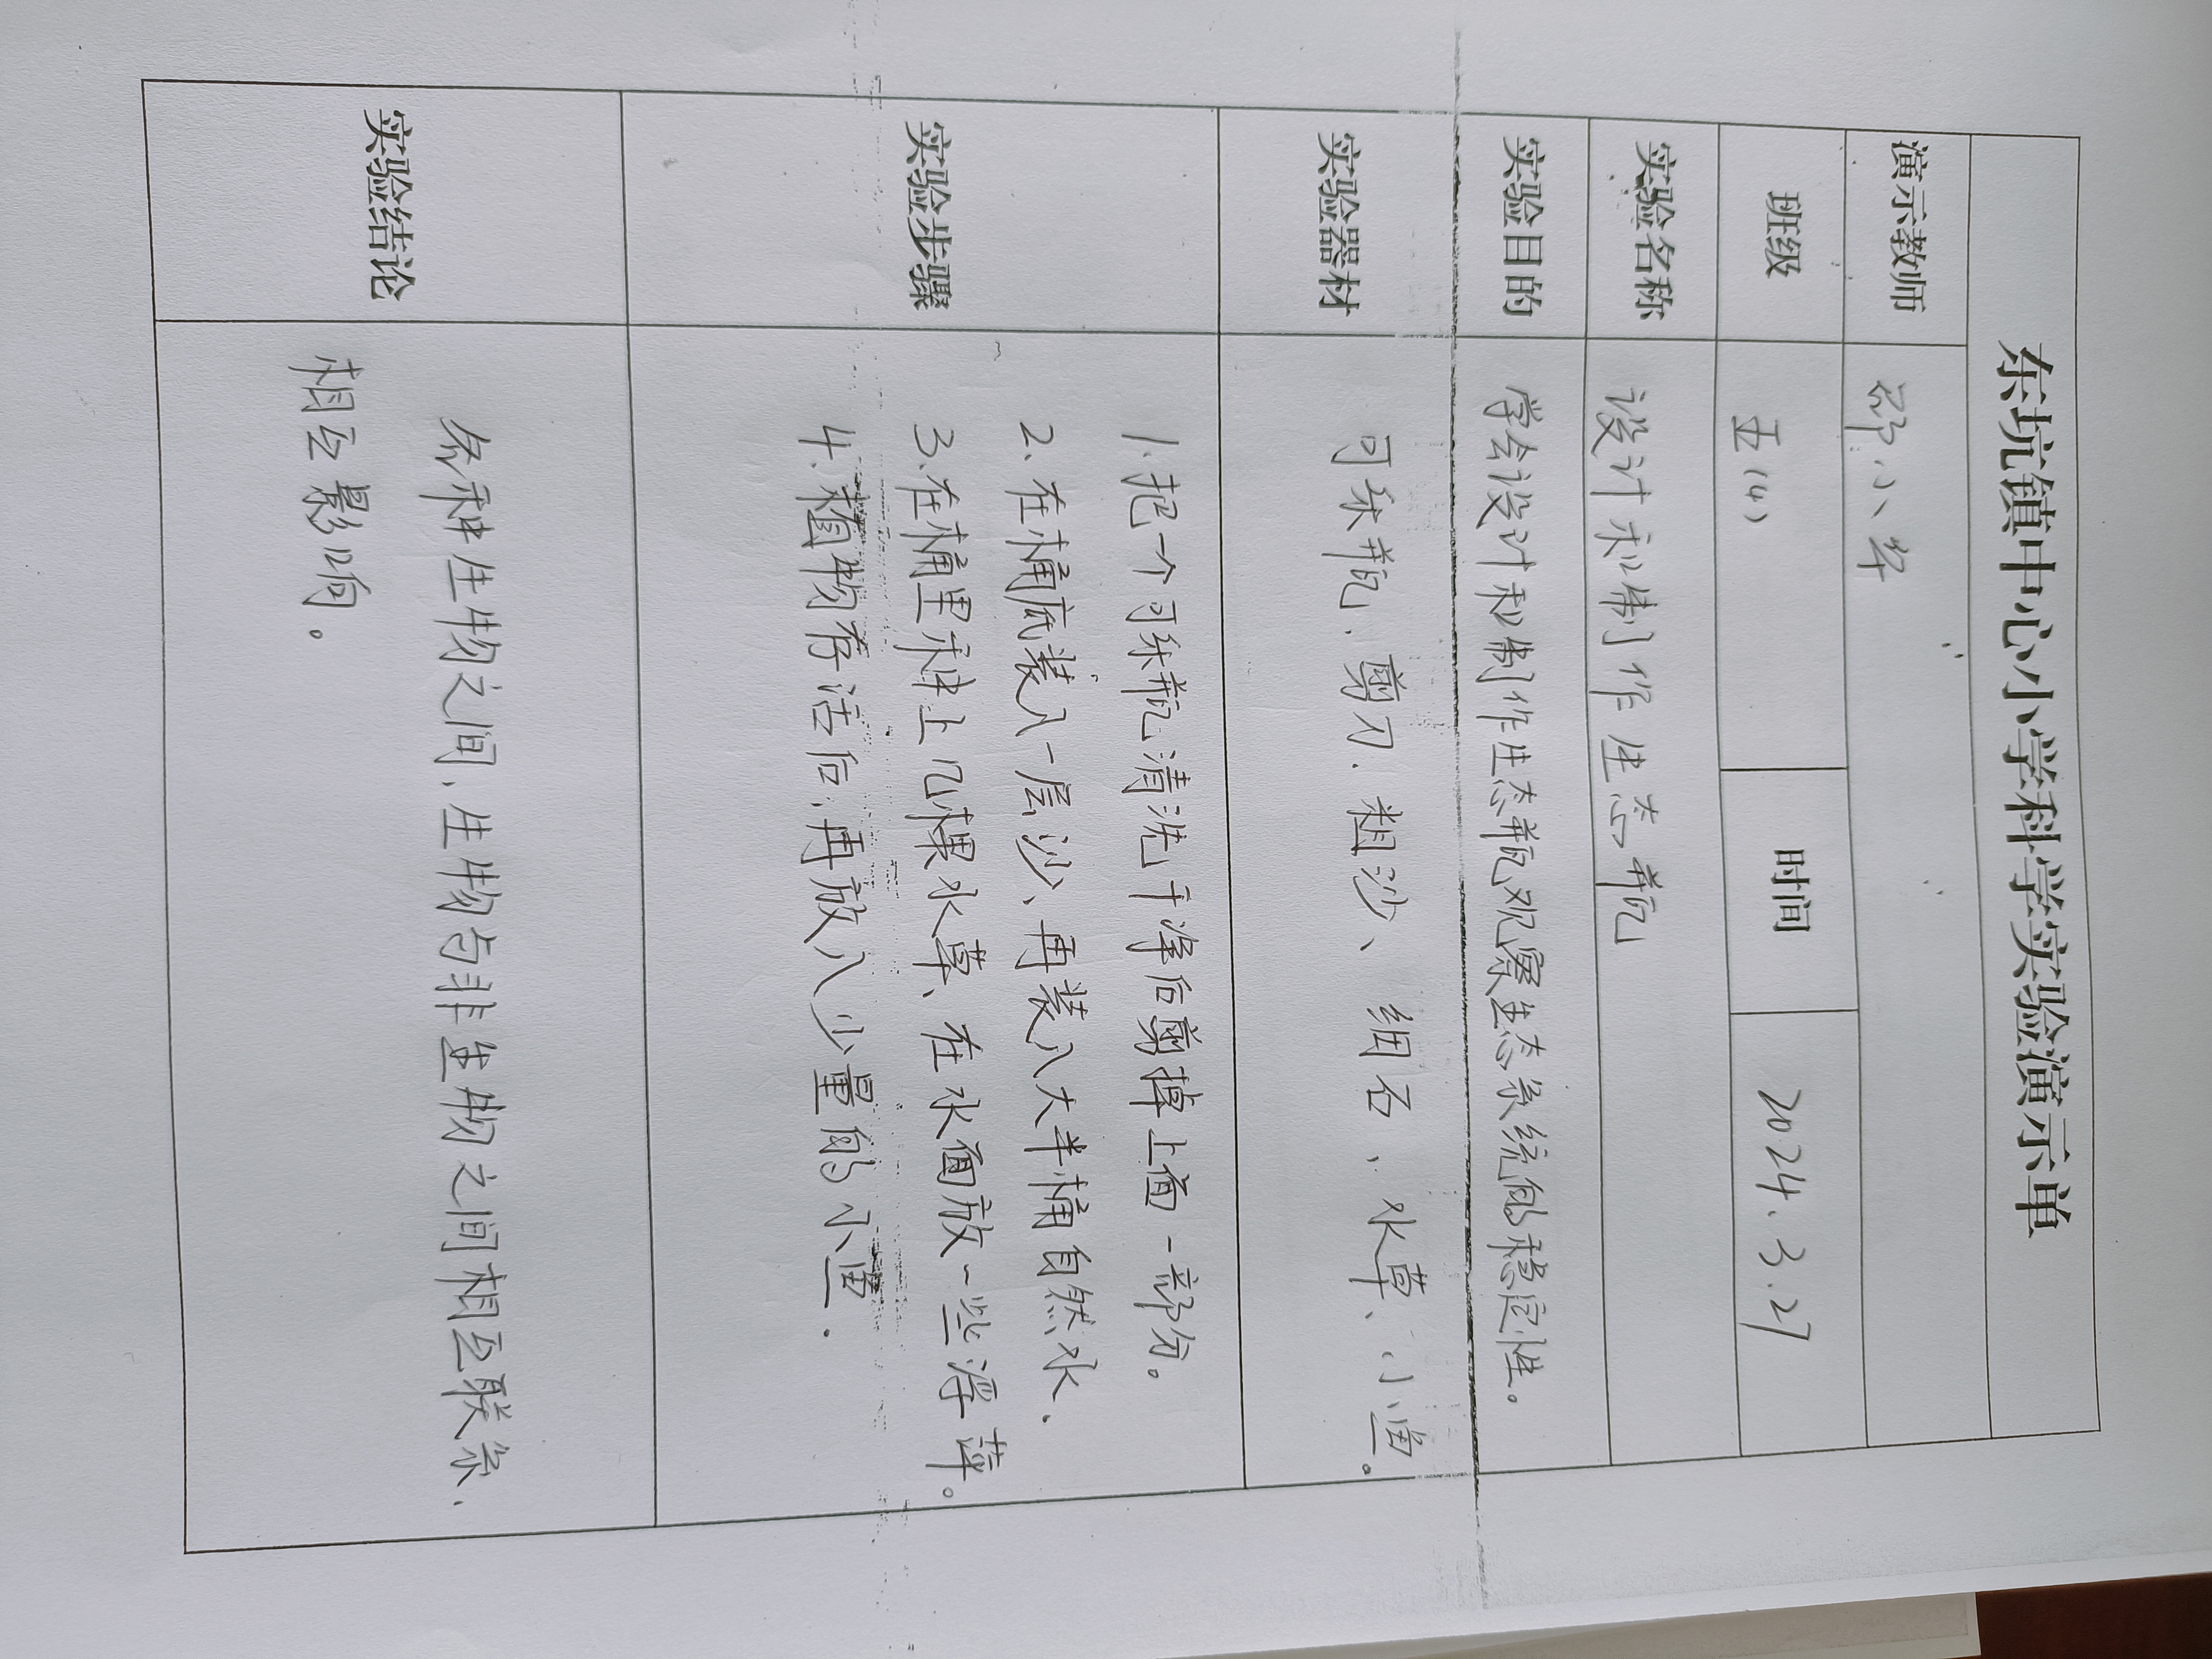 东坑镇中心小学科学实验演示单
演示教师 邵小军
班级 五(4) 时间 2024.3.27
实验名称 设计和制作生态瓶
实验目的 学会设计和制作生态瓶观察生态系统的稳定性。
实验器材 可乐瓶、剪刀、粗沙、细石、水草、小鱼。
实验步骤
1.把一个可乐瓶清洗干净后剪掉上面一部分。
2、在桶底装入一层沙、再装入大半桶自然水.
3、在桶里种上几棵水草、在水面放一些浮萍。
4、植物存活后,再放入少量的小鱼.
实验结论
各种生物之间、生物与非生物之间相互联系、
相互影响。